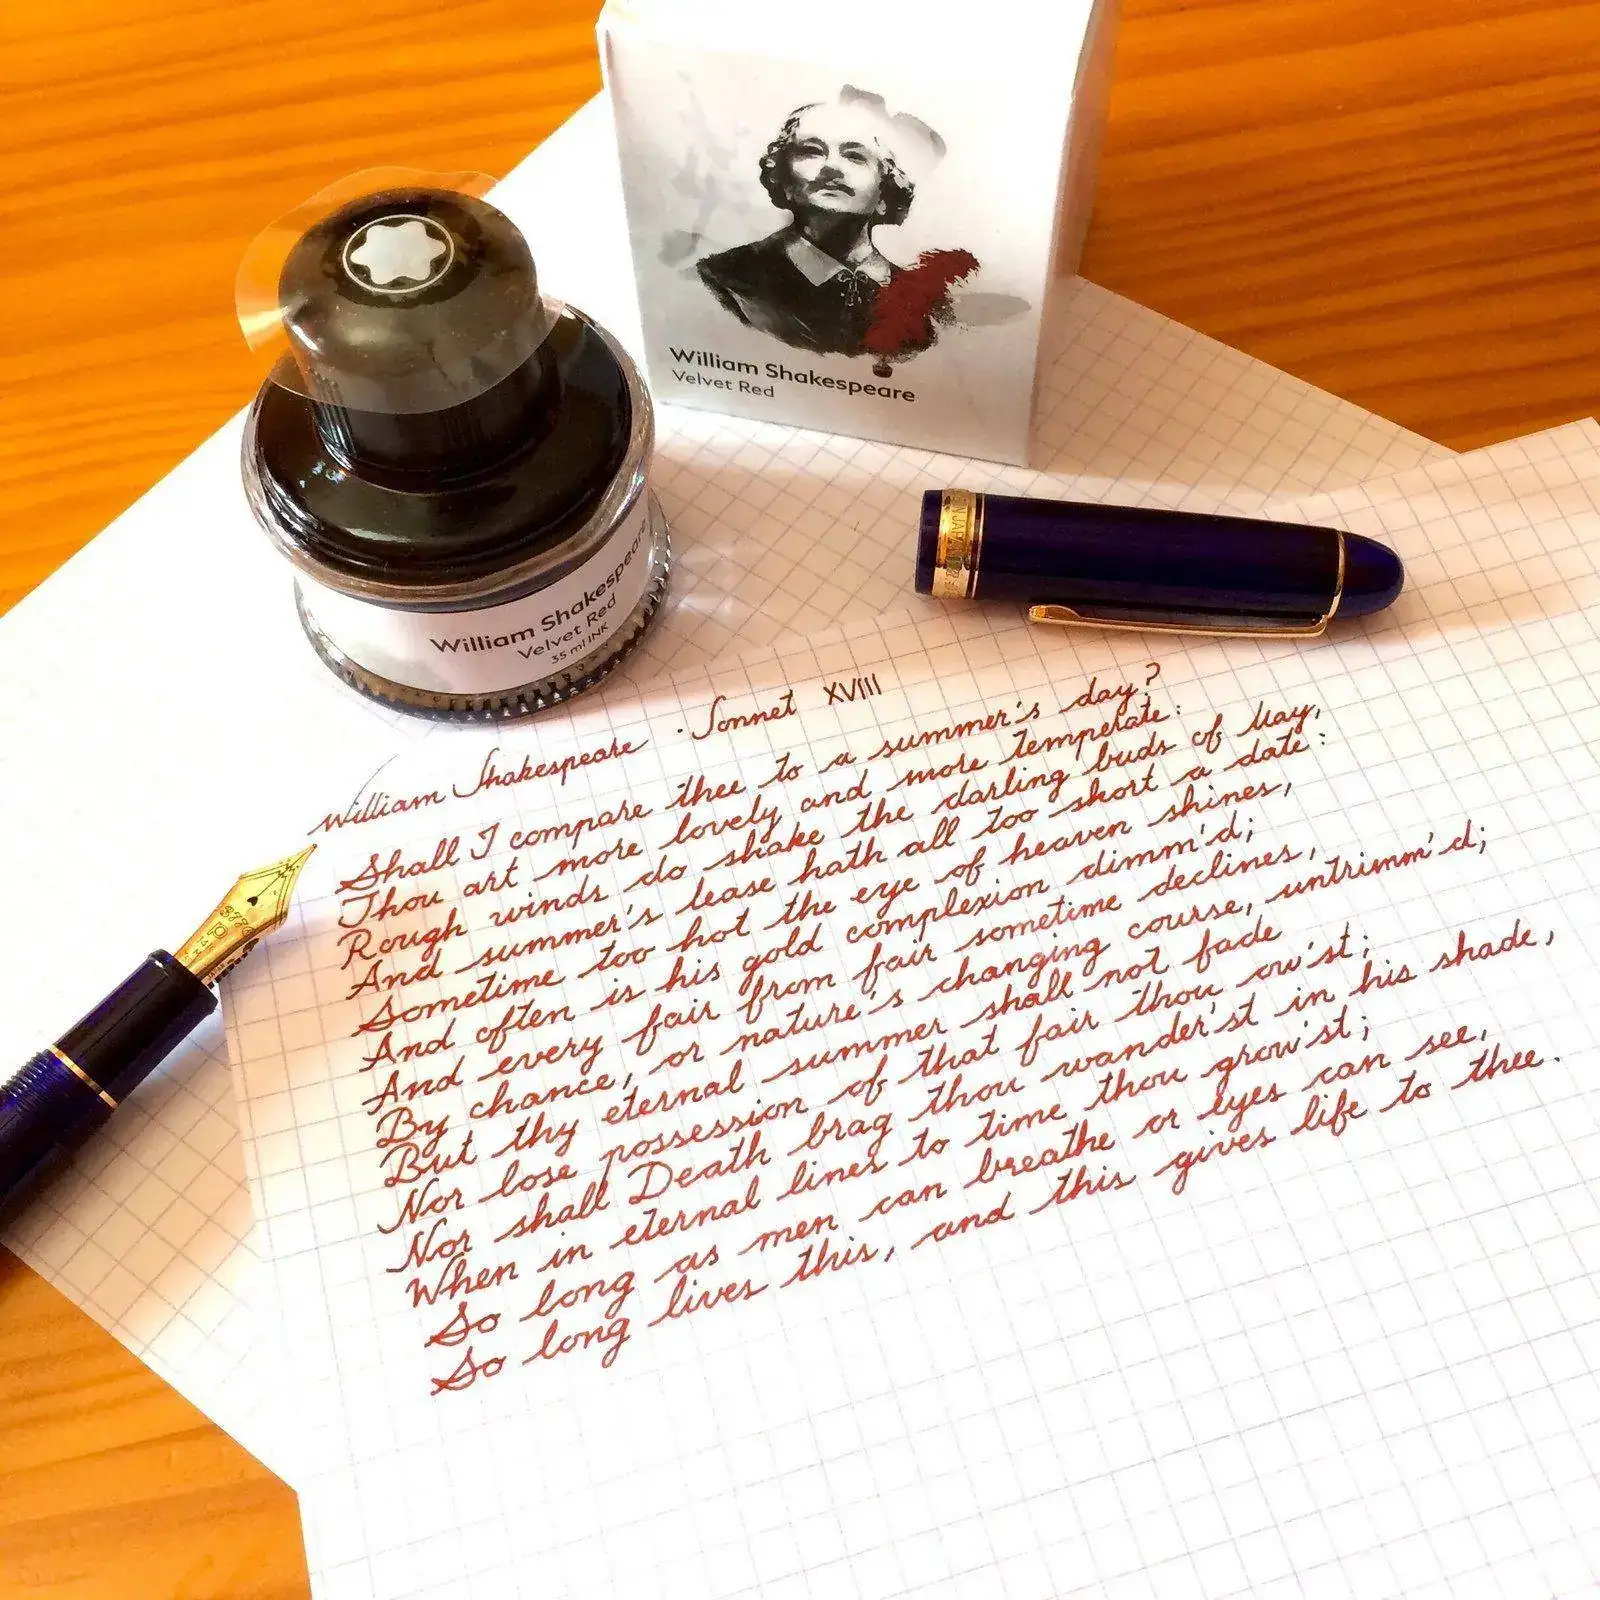 William Shakespeare
Velvet Red
William Shakespeare
Velvet Red
35 ml INK
N JAPAN
William Shakespeare · Sonnet XVIII
Shall I compare thee to a summer's day?
Thou art more lovely and more temperate:
Rough winds do shake the darling buds of May,
And summer's lease hath all too short a date:
Sometime too hot the eye of heaven shines,
And often is his gold complexion dimm'd;
And every fair from fair sometime declines,
By chance, or nature's changing course, untrimm'd;
But thy eternal summer shall not fade
Nor lose possession of that fair thou ow'st;
Nor shall Death brag thou wander'st in his shade,
When in eternal lines to time thou grow'st;
So long as men can breathe or eyes can see,
So long lives this, and this gives life to thee.